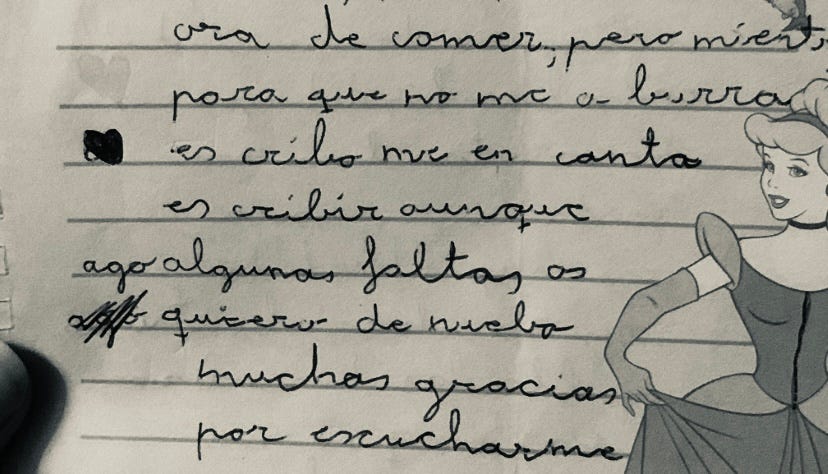 ora de comer, pero mient
para que no me a burra
es cribo me en canta
es cribir aunque
ago algunas faltas os
quiero de nuebo
muchas gracias
por escucharme